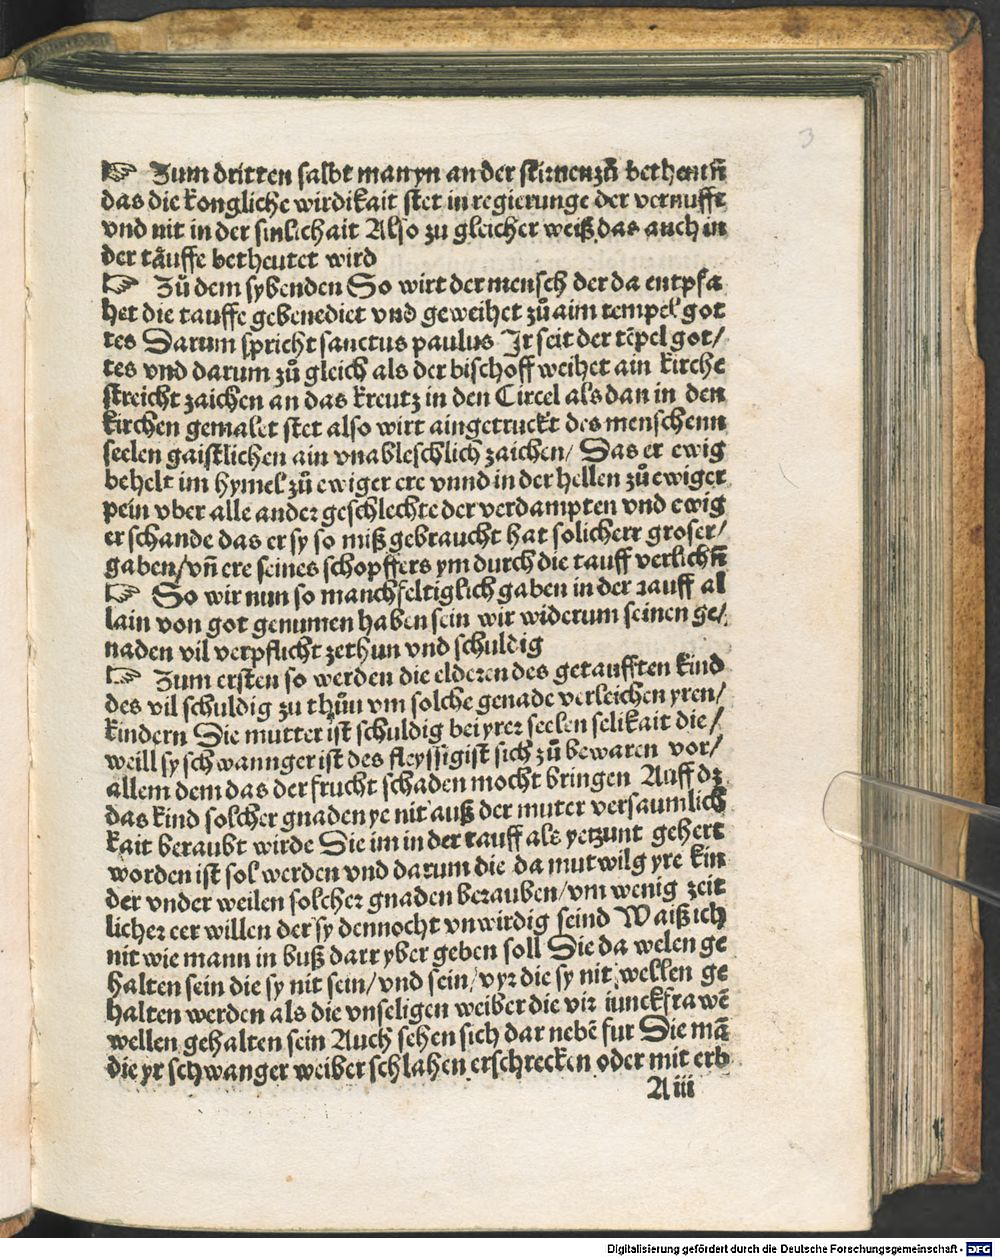 3
☞ Zum dritten salbt man yn an der stirnen zů betheutñ
das die kongliche wirdikait stet in regierunge der vernufft
vnd nit in der sinlichait Also zu gleicher weiß das auch in
der tåuffe betheutet wird
☞ Zů dem sybenden So wirt der mensch der da entpfa
het die tauffe gebenediet vnd geweihet zů aim tempel got
tes Darum spricht sanctus paulus Ir seit der tēpel got/
tes vnd darum zů gleich als der bischoff weihet ain kirche
streicht zaichen an das kreutz in den Circel als dan in den
kirchen gemalet stet also wirt aingetruckt des menschenn
seelen gaistlichen ain vnableschlich zaichen/ Das er ewig
behelt im hymel zů ewiger ere vnnd in der hellen zů ewiger
pein vber alle ander geschlechte der verdampten vnd ewig
er schande das er sy so miß gebraucht hat solicherr groser/
gaben/ vñ ere seines schopffers ym durch die tauff verlichñ
☞ So wir nun so manchfeltiglich gaben in der tauff al
lain von got genumen haben sein wir widerum seinen ge/
naden vil verpflicht zethun vnd schuldig
☞ Zum ersten so werden die elderen des getaufften kind
des vil schuldig zu thům vm solche genade verleichen yren/
kindern Die mutter ist schuldig bei yrer seelen selikait die/
weill sy schwannger ist des fleyssigist sich zů bewaren vor/
allem dem das der frucht schaden mocht bringen Auff dz
das kind solcher gnaden ye nit auß der muter versaumlich
kait beraubt wirde Die im in der tauff als yetzunt gehert
worden ist sol werden vnd darum die da mutwilg yre kin
der vnder weilen solcher gnaden berauben/ vm wenig zeit
licher eer willen der sy dennocht vnwirdig seind Waiß ich
nit wie mann in buß darr yber geben soll Die da welen ge
halten sein die sy nit sein/ vnd sein/ vyr die sy nit wellen ge
halten werden als die vnseligen weiber die vir iunckfrawē
wellen gehalten sein Auch sehen sich dar nebē fur Die mā
die yr schwanger weiber schlahen erschrecken oder mit erb
A iii
Digitalisierung gefördert durch die Deutsche Forschungsgemeinschaft - DFG